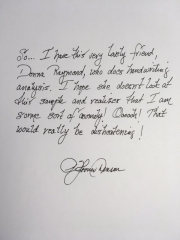 So... I have this very lovely friend,
Donna Raymond, who does handwriting
analysis. I hope she doesn't look at
this sample and realizes that I am
some sort of anomaly! Ooooh! That
would really be disheartening!